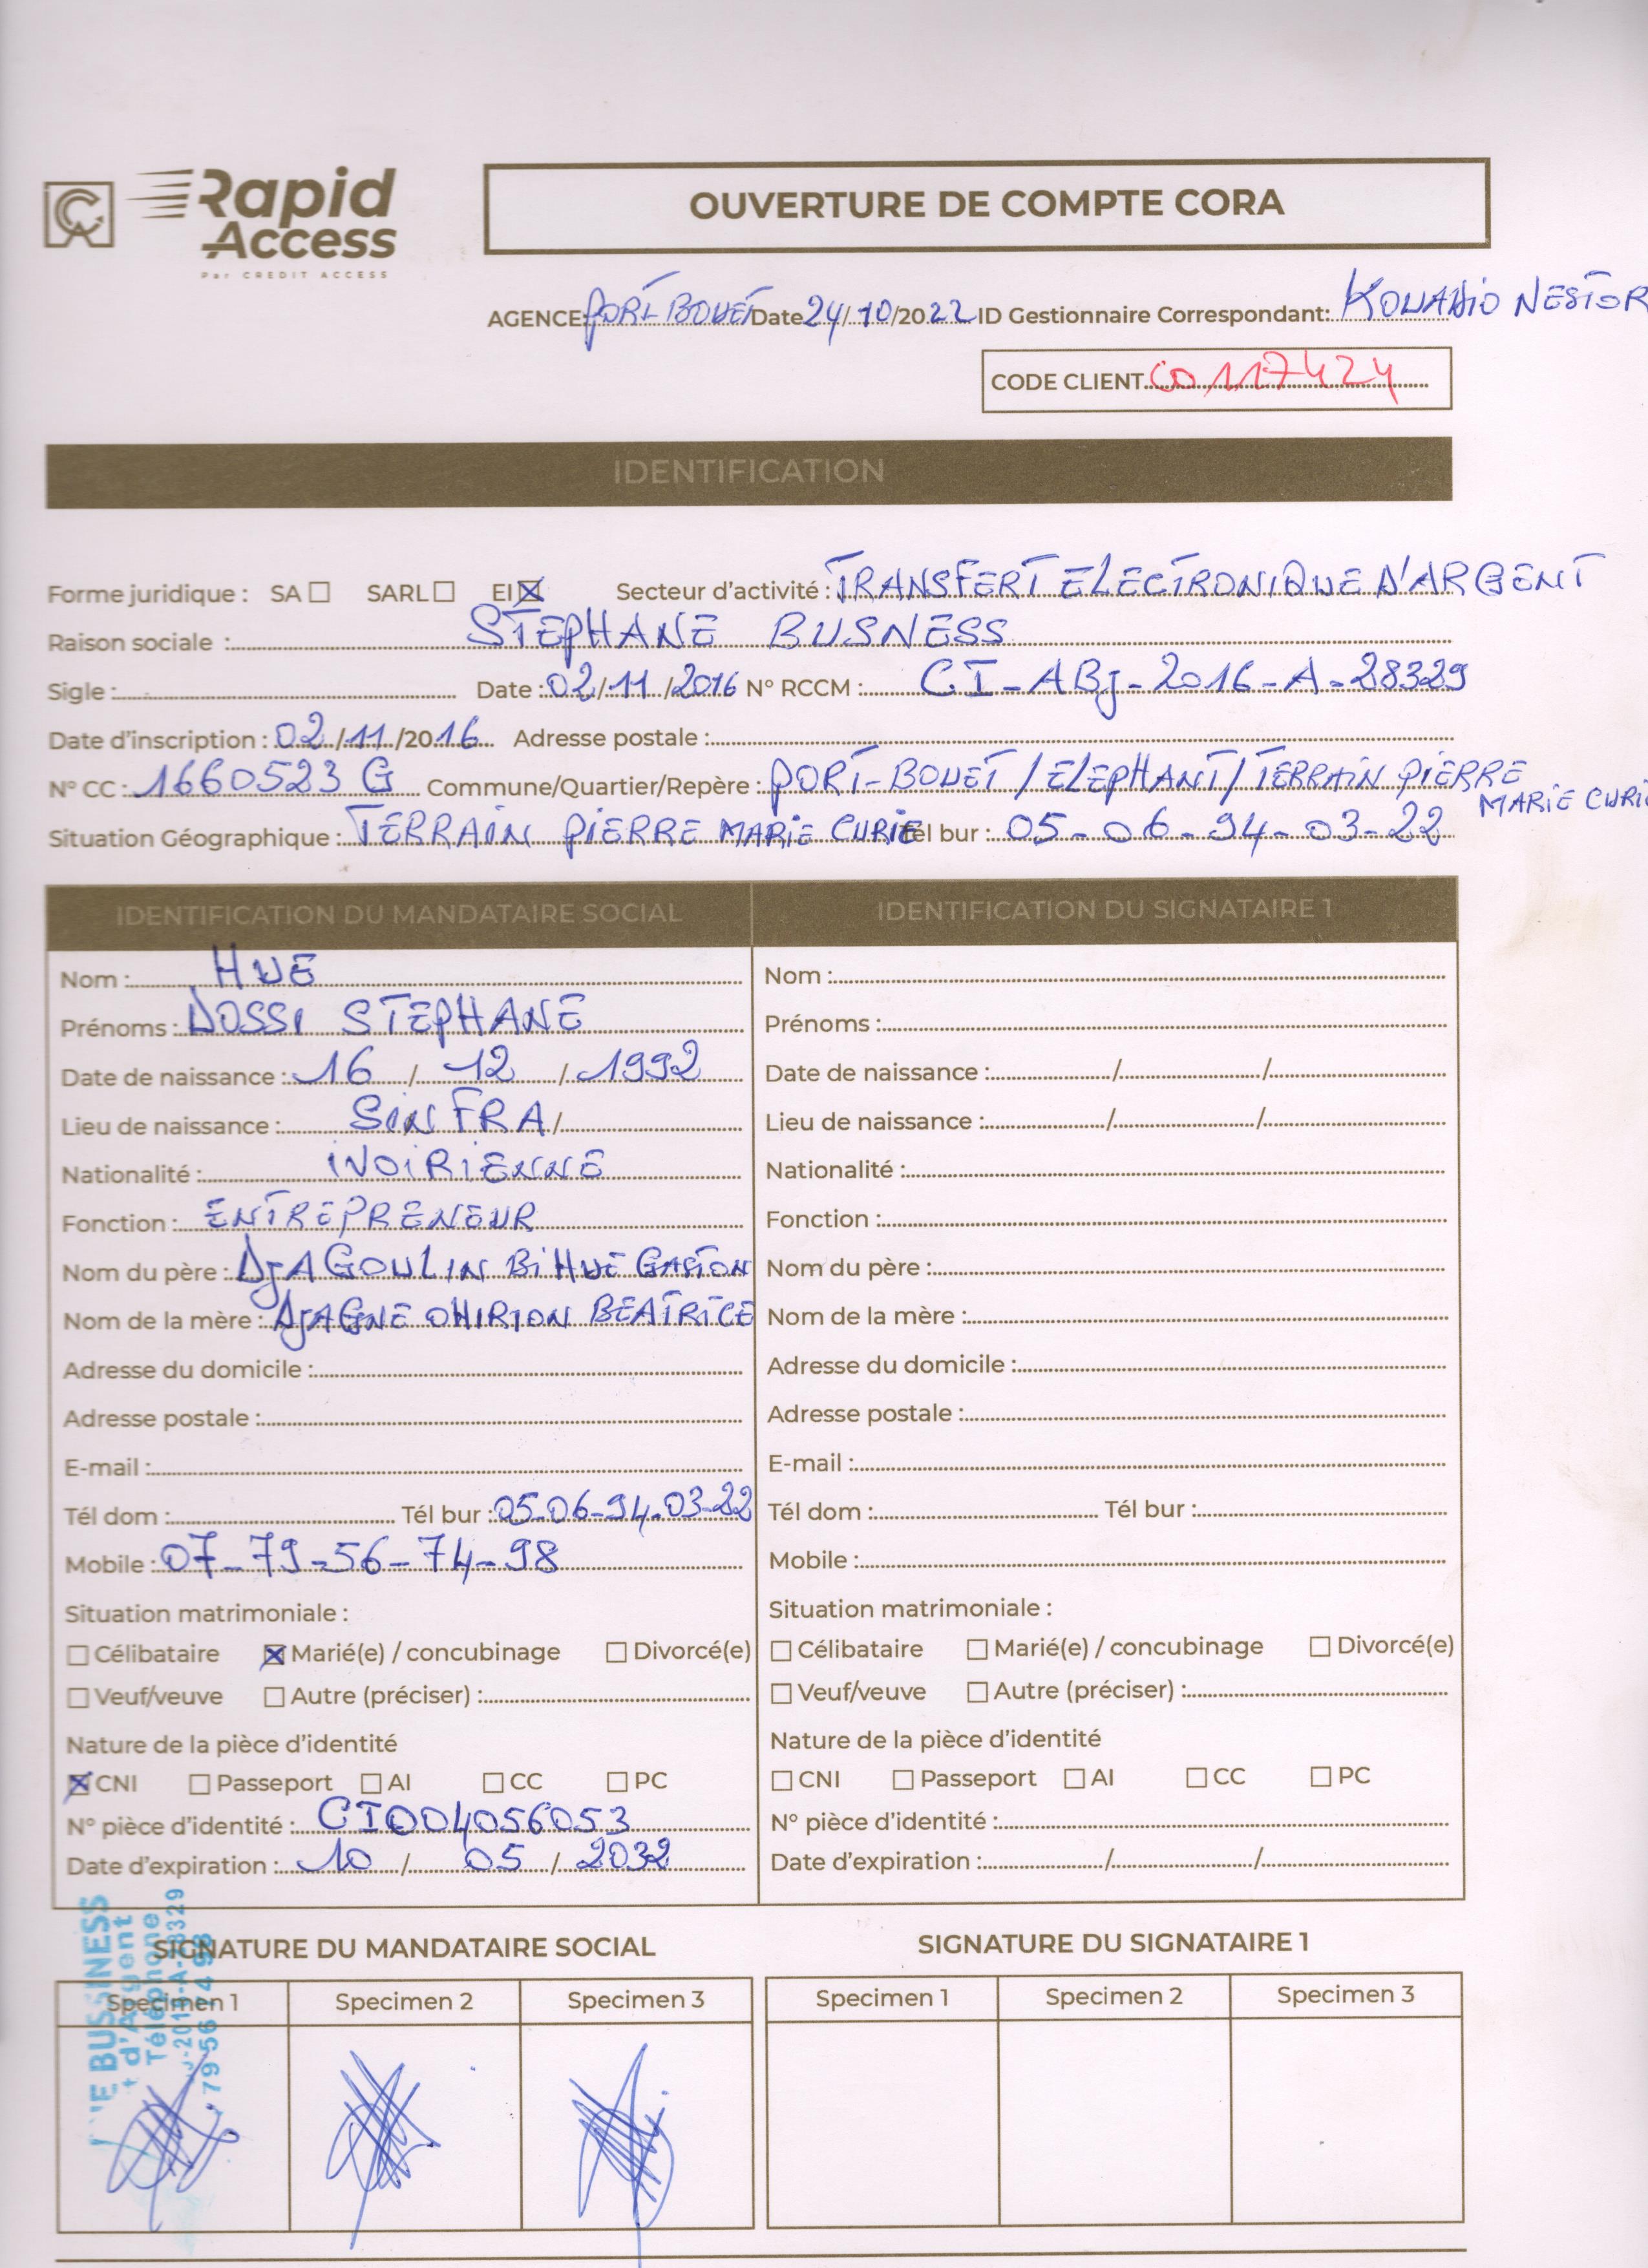 Rapid
Access
Par CREDIT ACCESS
OUVERTURE DE COMPTE CORA
AGENCE: PORT-BOUET Date 24/10/2022 ID Gestionnaire Correspondant: KOUADIO NESTOR
CODE CLIENT 00117424
IDENTIFICATION
Forme juridique : SA ☐ SARL ☐ EI ☒ Secteur d'activité : TRANSFERT ELECTRONIQUE D'ARGENT
Raison sociale : STEPHANE BUSNESS
Sigle : Date : 02/11/2016 N° RCCM : CI-ABj-2016-A-28329
Date d'inscription : 02/11/2016 Adresse postale :
N° CC : 1660523 G Commune/Quartier/Repère : PORT-BOUET/ELEPHANT/TERRAIN PIERRE MARIE CURIE
Situation Géographique : TERRAIN PIERRE MARIE CURIE Tél bur : 05-06-94-03-22
IDENTIFICATION DU MANDATAIRE SOCIAL
Nom : HUE
Prénoms : DOSSI STEPHANE
Date de naissance : 16 / 12 / 1992
Lieu de naissance : SINFRA/
Nationalité : IVOIRIENNE
Fonction : ENTREPRENEUR
Nom du père : DjAGOULIN Bi HUE GASTON
Nom de la mère : DjAGNE OHIRION BEATRICE
Adresse du domicile :
Adresse postale :
E-mail :
Tél dom : Tél bur : 05-06-94-03-22
Mobile : 07-79-56-74-98
Situation matrimoniale :
☐ Célibataire ☒ Marié(e) / concubinage ☐ Divorcé(e)
☐ Veuf/veuve ☐ Autre (préciser) :
Nature de la pièce d'identité
☒ CNI ☐ Passeport ☐ AI ☐ CC ☐ PC
N° pièce d'identité : CI004056053
Date d'expiration : 10 / 05 / 2032
IDENTIFICATION DU SIGNATAIRE 1
Nom :
Prénoms :
Date de naissance : / /
Lieu de naissance : / /
Nationalité :
Fonction :
Nom du père :
Nom de la mère :
Adresse du domicile :
Adresse postale :
E-mail :
Tél dom : Tél bur :
Mobile :
Situation matrimoniale :
☐ Célibataire ☐ Marié(e) / concubinage ☐ Divorcé(e)
☐ Veuf/veuve ☐ Autre (préciser) :
Nature de la pièce d'identité
☐ CNI ☐ Passeport ☐ AI ☐ CC ☐ PC
N° pièce d'identité :
Date d'expiration : / /
SIGNATURE DU MANDATAIRE SOCIAL
Specimen 1 Specimen 2 Specimen 3
BUSSINESS
d'Argent
Téléphone
SIGNATURE DU SIGNATAIRE 1
Specimen 1 Specimen 2 Specimen 3